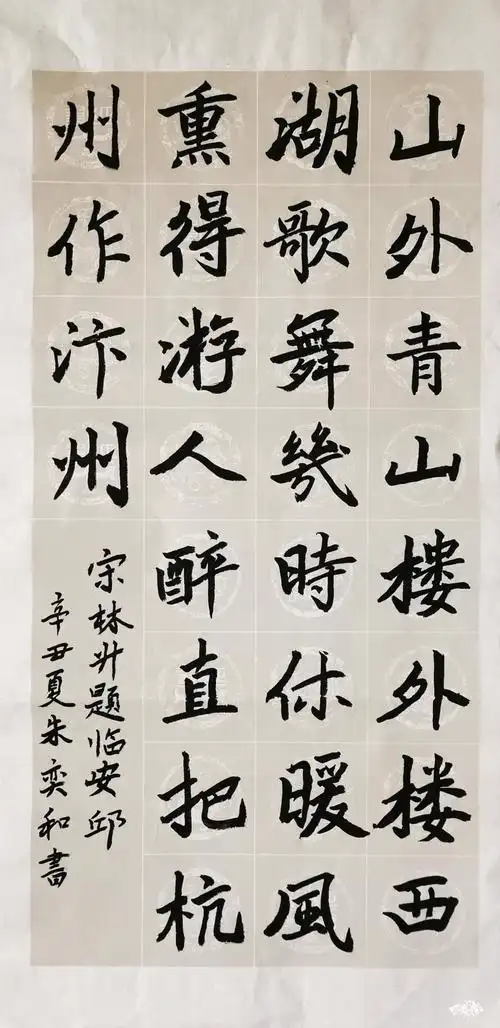 山外青山楼外楼西
湖歌舞幾時休暖風
熏得游人醉直把杭
州作汴州
宋林升題临安邱
辛丑夏朱奕和書